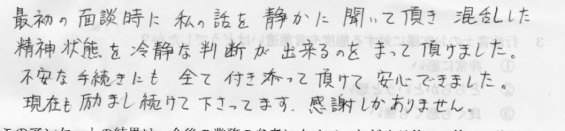 最初の面談時に私の話を静かに聞いて頂き混乱した
精神状態を冷静な判断が出来るのをまって頂けました。
不安な手続きにも全て付き添って頂けて安心できました。
現在も励まし続けて下さってます。感謝しかありません。